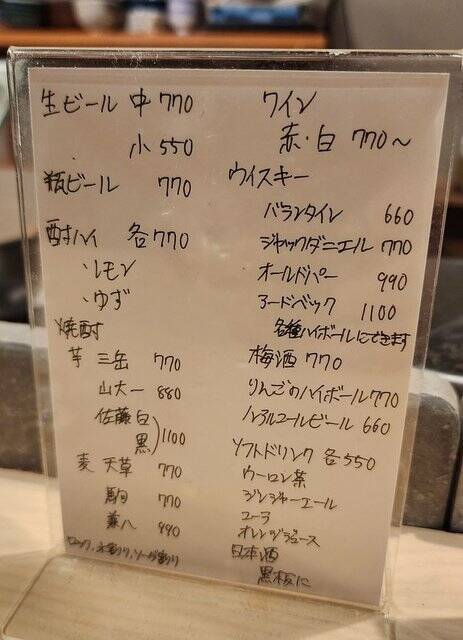 生ビール 中 770
小 550
瓶ビール 770
酎ハイ 各770
・レモン
・ゆず
焼酎
芋 三岳 770
山大一 880
佐藤白
黒 1100
麦 天草 770
駒 770
兼八 990
ロック、水割り、ソーダ割り
ワイン
赤・白 770〜
ウイスキー
バランタイン 660
ジャックダニエル 770
オールドパー 990
アードベック 1100
各種ハイボールにできます
梅酒 770
りんごのハイボール 770
ノンアルコールビール 660
ソフトドリンク 各550
ウーロン茶
ジンジャーエール
コーラ
オレンジジュース
日本酒
黒板に